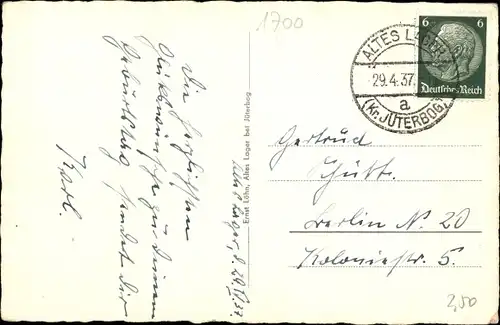 1700
ALTES LAGER
29.4.37.
a
(Kr. JÜTERBOG)
6 6
Deutsches Reich
Altes Lager, d. 29.IV.37.
Die herzlichsten
Glückwünsche zu Deinem
Geburtstag sendet Dir
Karl.
Ernst Löhn, Altes Lager bei Jüterbog
Gertrud
Schütt.
Berlin N. 20
Koloniestr. 5.
2,50